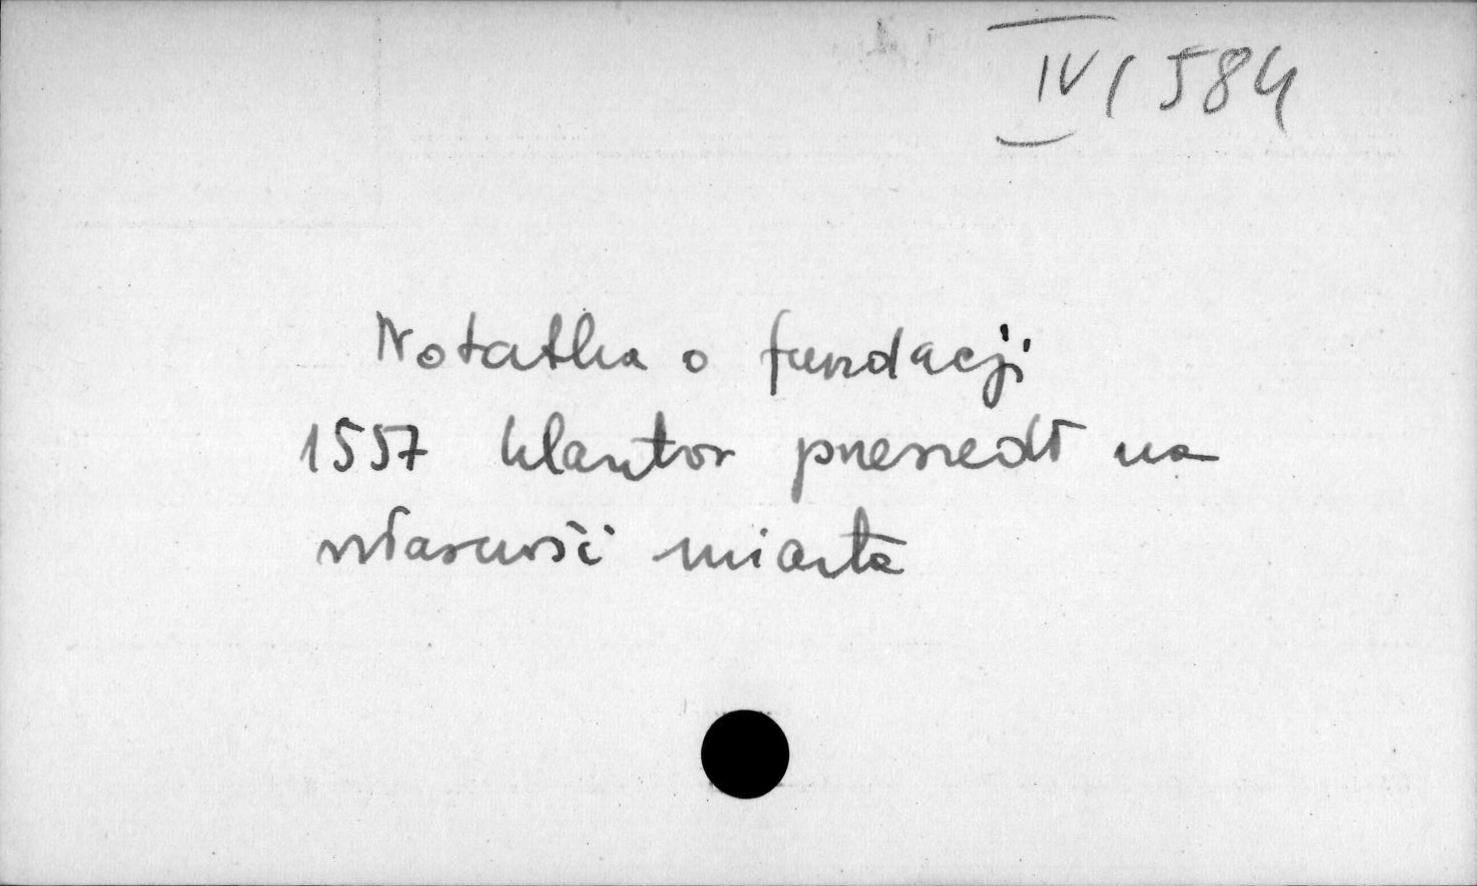 IV/584
Notatka o fundacji
1557 klasztor przeszedł na
własność miasta